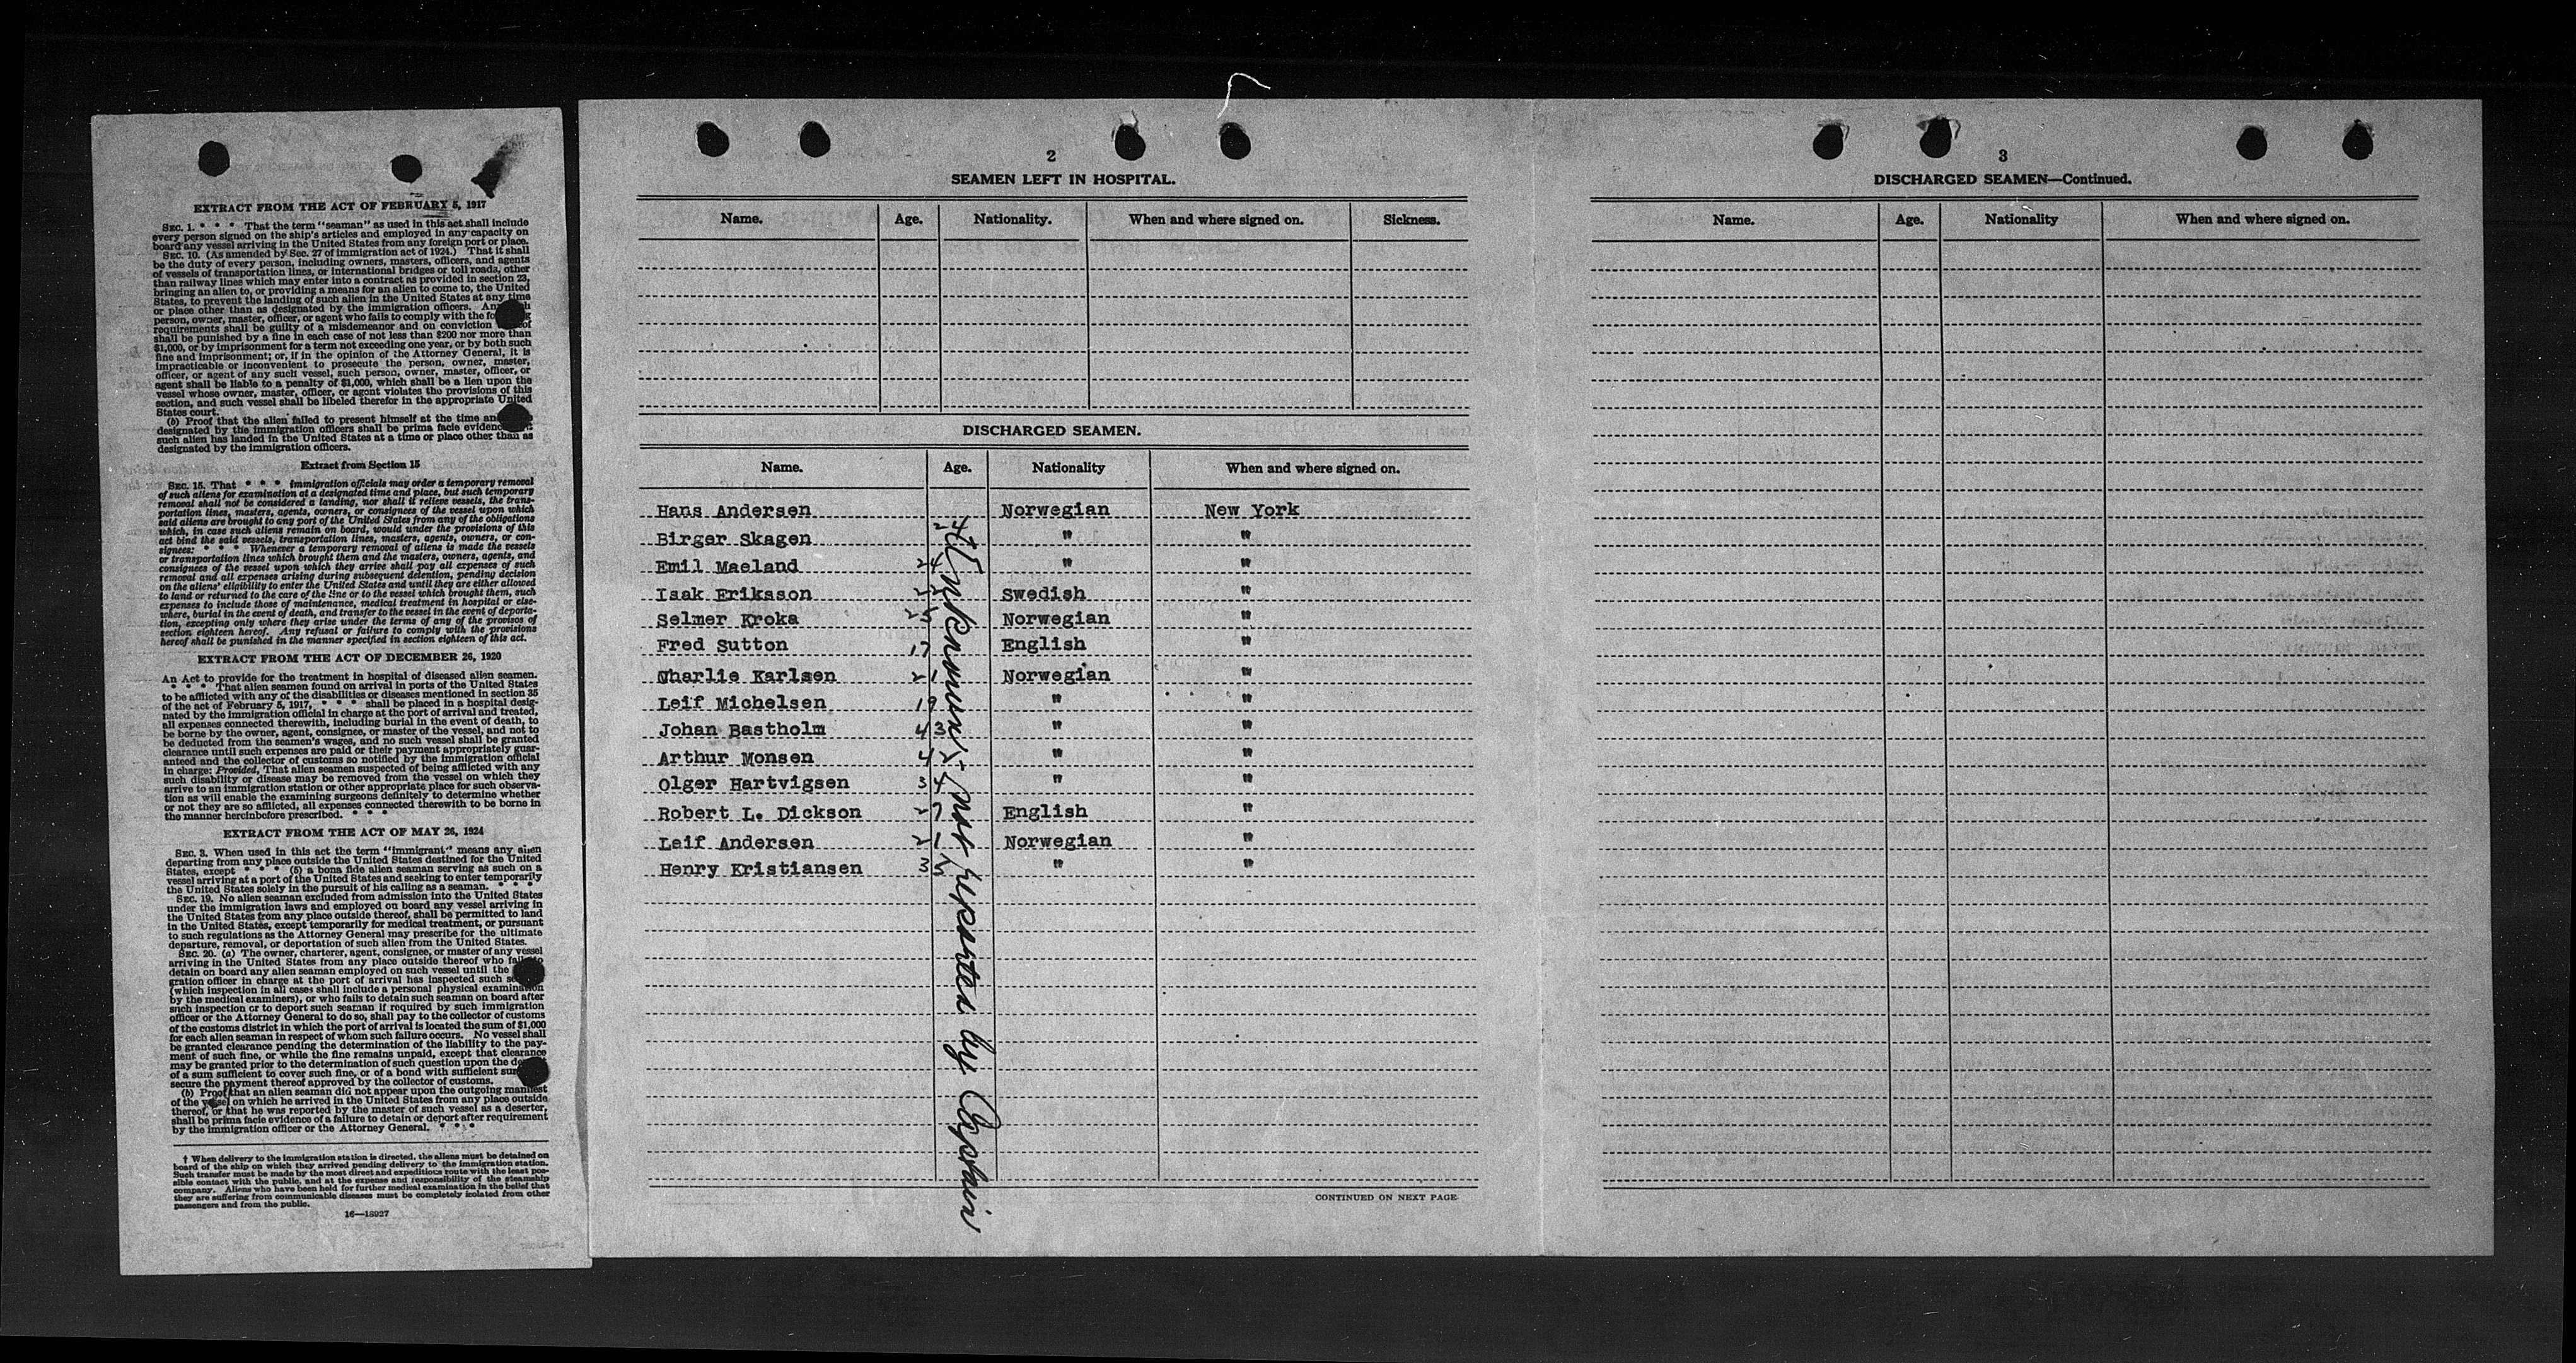 EXTRACT FROM THE ACT OF FEBRUARY 5, 1917
SEC. 1. * * * That the term "seaman" as used in this act shall include
every person signed on the ship's articles and employed in any capacity on
board any vessel arriving in the United States from any foreign port or place.
SEC. 10. (As amended by Sec. 27 of immigration act of 1924.) That it shall
be the duty of every person, including owners, masters, officers, and agents
of vessels of transportation lines, or international bridges or toll roads, other
than railway lines which may enter into a contract as provided in section 23,
bringing an alien to, or providing a means for an alien to come to, the United
States, to prevent the landing of such alien in the United States at any time
or place other than as designated by the immigration officers. Any
person, owner, master, officer, or agent who fails to comply with the
requirements shall be guilty of a misdemeanor and on conviction
shall be punished by a fine in each case of not less than $200 nor more than
$1,000, or by imprisonment for a term not exceeding one year, or by both such
fine and imprisonment; or, if in the opinion of the Attorney General, it is
impracticable or inconvenient to prosecute the person, owner, master,
officer, or agent of any such vessel, such person, owner, master, officer, or
agent shall be liable to a penalty of $1,000, which shall be a lien upon the
vessel whose owner, master, officer, or agent violates the provisions of this
section, and such vessel shall be libeled therefor in the appropriate United
States court.
(b) Proof that the alien failed to present himself at the time and
designated by the immigration officers shall be prima facie evidence
such alien has landed in the United States at a time or place other than as
designated by the immigration officers.
Extract from Section 15
SEC. 15. That * * * immigration officials may order a temporary removal
of such aliens for examination at a designated time and place, but such temporary
removal shall not be considered a landing, nor shall it relieve vessels, the trans-
portation lines, masters, agents, owners, or consignees of the vessel upon which
said aliens are brought to any port of the United States from any of the obligations
which, in case such aliens remain on board, would under the provisions of this
act bind the said vessels, transportation lines, masters, agents, owners, or con-
signees: * * * Whenever a temporary removal of aliens is made the vessels
or transportation lines which brought them and the masters, owners, agents, and
consignees of the vessel upon which they arrive shall pay all expenses of such
removal and all expenses arising during subsequent detention, pending decision
on the aliens' eligibility to enter the United States and until they are either allowed
to land or returned to the care of the line or to the vessel which brought them, such
expenses to include those of maintenance, medical treatment in hospital or else-
where, burial in the event of death, and transfer to the vessel in the event of deporta-
tion, excepting only where they arise under the terms of any of the provisos of
section eighteen hereof. Any refusal or failure to comply with the provisions
hereof shall be punished in the manner specified in section eighteen of this act.
EXTRACT FROM THE ACT OF DECEMBER 26, 1920
An Act to provide for the treatment in hospital of diseased alien seamen.
* * * That alien seamen found on arrival in ports of the United States
to be afflicted with any of the disabilities or diseases mentioned in section 35
of the act of February 5, 1917, * * * shall be placed in a hospital desig-
nated by the immigration official in charge at the port of arrival and treated,
all expenses connected therewith, including burial in the event of death, to
be borne by the owner, agent, consignee, or master of the vessel, and not to
be deducted from the seamen's wages, and no such vessel shall be granted
clearance until such expenses are paid or their payment appropriately guar-
anteed and the collector of customs so notified by the immigration official
in charge: Provided, That alien seamen suspected of being afflicted with any
such disability or disease may be removed from the vessel on which they
arrive to an immigration station or other appropriate place for such observa-
tion as will enable the examining surgeons definitely to determine whether
or not they are so afflicted, all expenses connected therewith to be borne in
the manner hereinbefore prescribed. * * *
EXTRACT FROM THE ACT OF MAY 26, 1924
SEC. 3. When used in this act the term "immigrant" means any alien
departing from any place outside the United States destined for the United
States, except * * * (5) a bona fide alien seaman serving as such on a
vessel arriving at a port of the United States and seeking to enter temporarily
the United States solely in the pursuit of his calling as a seaman. * * *
SEC. 19. No alien seaman excluded from admission into the United States
under the immigration laws and employed on board any vessel arriving in
the United States from any place outside thereof, shall be permitted to land
in the United States, except temporarily for medical treatment, or pursuant
to such regulations as the Attorney General may prescribe for the ultimate
departure, removal, or deportation of such alien from the United States.
SEC. 20. (a) The owner, charterer, agent, consignee, or master of any vessel
arriving in the United States from any place outside thereof who
detain on board any alien seaman employed on such vessel until the
gration officer in charge at the port of arrival has inspected such
(which inspection in all cases shall include a personal physical examination
by the medical examiners), or who fails to detain such seaman on board after
such inspection or to deport such seaman if required by such immigration
officer or the Attorney General to do so, shall pay to the collector of customs
of the customs district in which the port of arrival is located the sum of $1,000
for each alien seaman in respect of whom such failure occurs. No vessel shall
be granted clearance pending the determination of the liability to the pay-
ment of such fine, or while the fine remains unpaid, except that clearance
may be granted prior to the determination of such question upon the
of a sum sufficient to cover such fine, or of a bond with sufficient
secure the payment thereof approved by the collector of customs.
(b) Proof that an alien seaman did not appear upon the outgoing manifest
of the vessel on which he arrived in the United States from any place outside
thereof, or that he was reported by the master of such vessel as a deserter,
shall be prima facie evidence of a failure to detain or deport after requirement
by the immigration officer or the Attorney General. * * *
† When delivery to the immigration station is directed, the aliens must be detained on
board of the ship on which they arrived pending delivery to the immigration station.
Such transfer must be made by the most direct and expeditious route with the least pos-
sible contact with the public, and at the expense and responsibility of the steamship
company. Aliens who have been held for further medical examination in the belief that
they are suffering from communicable diseases must be completely isolated from other
passengers and from the public.
16—18927
2
SEAMEN LEFT IN HOSPITAL.
Name. Age. Nationality. When and where signed on. Sickness.
DISCHARGED SEAMEN.
Name. Age. Nationality When and where signed on.
Hans Andersen Norwegian New York
Birger Skagen " "
Emil Maeland 24 " "
Isak Eriksson Swedish "
Selmer Kroka 25 Norwegian "
Fred Sutton 17 English "
Charlie Karlsen 21 Norwegian "
Leif Michelsen 19 " "
Johan Bastholm 43 " "
Arthur Monsen " "
Olger Hartvigsen 34 " "
Robert L. Dickson 27 English "
Leif Andersen 21 Norwegian "
Henry Kristiansen 35 " "
not reported by Captain
CONTINUED ON NEXT PAGE
3
DISCHARGED SEAMEN—Continued.
Name. Age. Nationality When and where signed on.